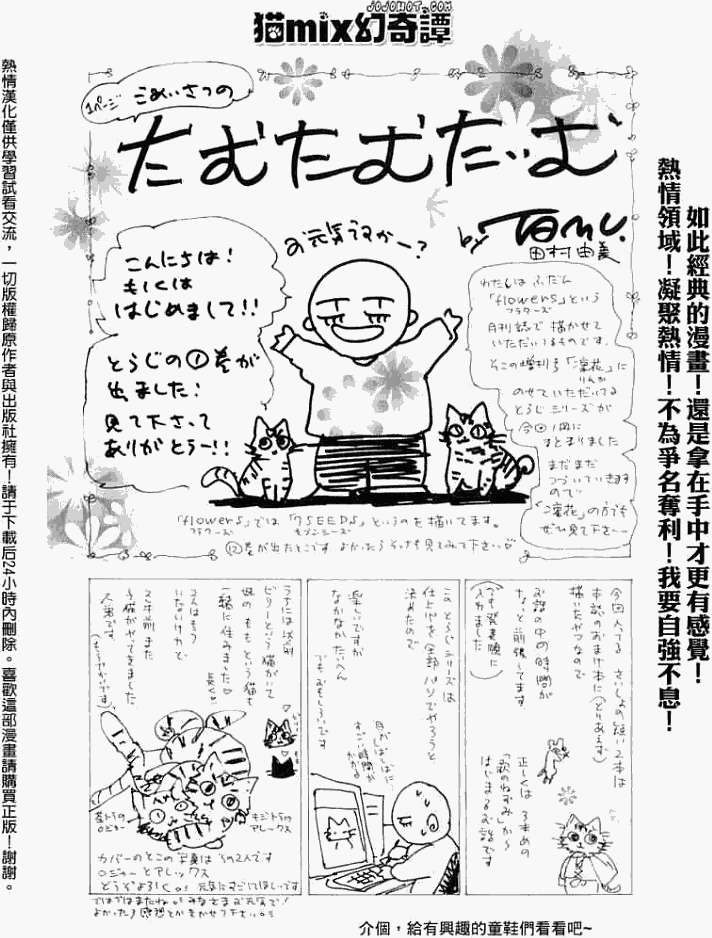 JOJOHOT.COM
猫mix幻奇譚
1ページ
ごあいさつの
たむたむたいむ
by TAMU.
田村由美
お元気ですかー?
こんにちは!
もしくは
はじめまして!!
とらじの①巻が
出ました!
見て下さって
ありがとうー!!
わたしは ふだん
「flowers」という
フラワーズ
月刊誌で 描かせて
いただいてるものです。
そこの増刊号「凜花」に
りんか
のせていただいてる
とらじシリーズが
今回1冊に
まとまりました
まだまだ
つづいていきます
ので
「凜花」の方でも
ぜひ見て下さい
「flowers」では「7SEEDS」というのを描いてます。
フラワーズ
セブンシーズ
⑫巻が出たとこです よかったらそっちも見てみて下さい♡
今回入ってる さいしょの短い2本は
本誌のおまけ本に(とりあえず)
描いたやつなので
お話の中の時間が
ちょっと前後してます
入れました)
正しくは 3本めの
「歌のねずみ」から
はじまるお話です
この とらじシリーズは
仕上げを 全部パソでやろうと
決めたので
楽しいですが
なかなかたいへん
でもおもしろいです
目がしばしばに
すごい時間が
かかる
うちには以前
ビリーという猫がいて
妹の ももという猫も
一緒に住みました♡
2人はもう
いないけれど
2年前また
子猫がやってきました
人男です
茶トラの
ロジャー
キジトラの
アレックス
カバーのとこの写真は その2人です
ロジャーとアレックス
どうぞよろしく。 元気にすごしてほしいです
ではではまたね。 みなさまお元気で!
よかったら感想とかきかせて下さい。
如此經典的漫畫!還是拿在手中才更有感覺!
熱情領域!凝聚熱情!不為爭名奪利!我要自強不息!
熱情漢化僅供學習試看交流,一切版權歸原作者與出版社擁有!請于下載后24小時內刪除。喜歡這部漫畫請購買正版!謝謝。
介個,給有興趣的童鞋們看看吧~